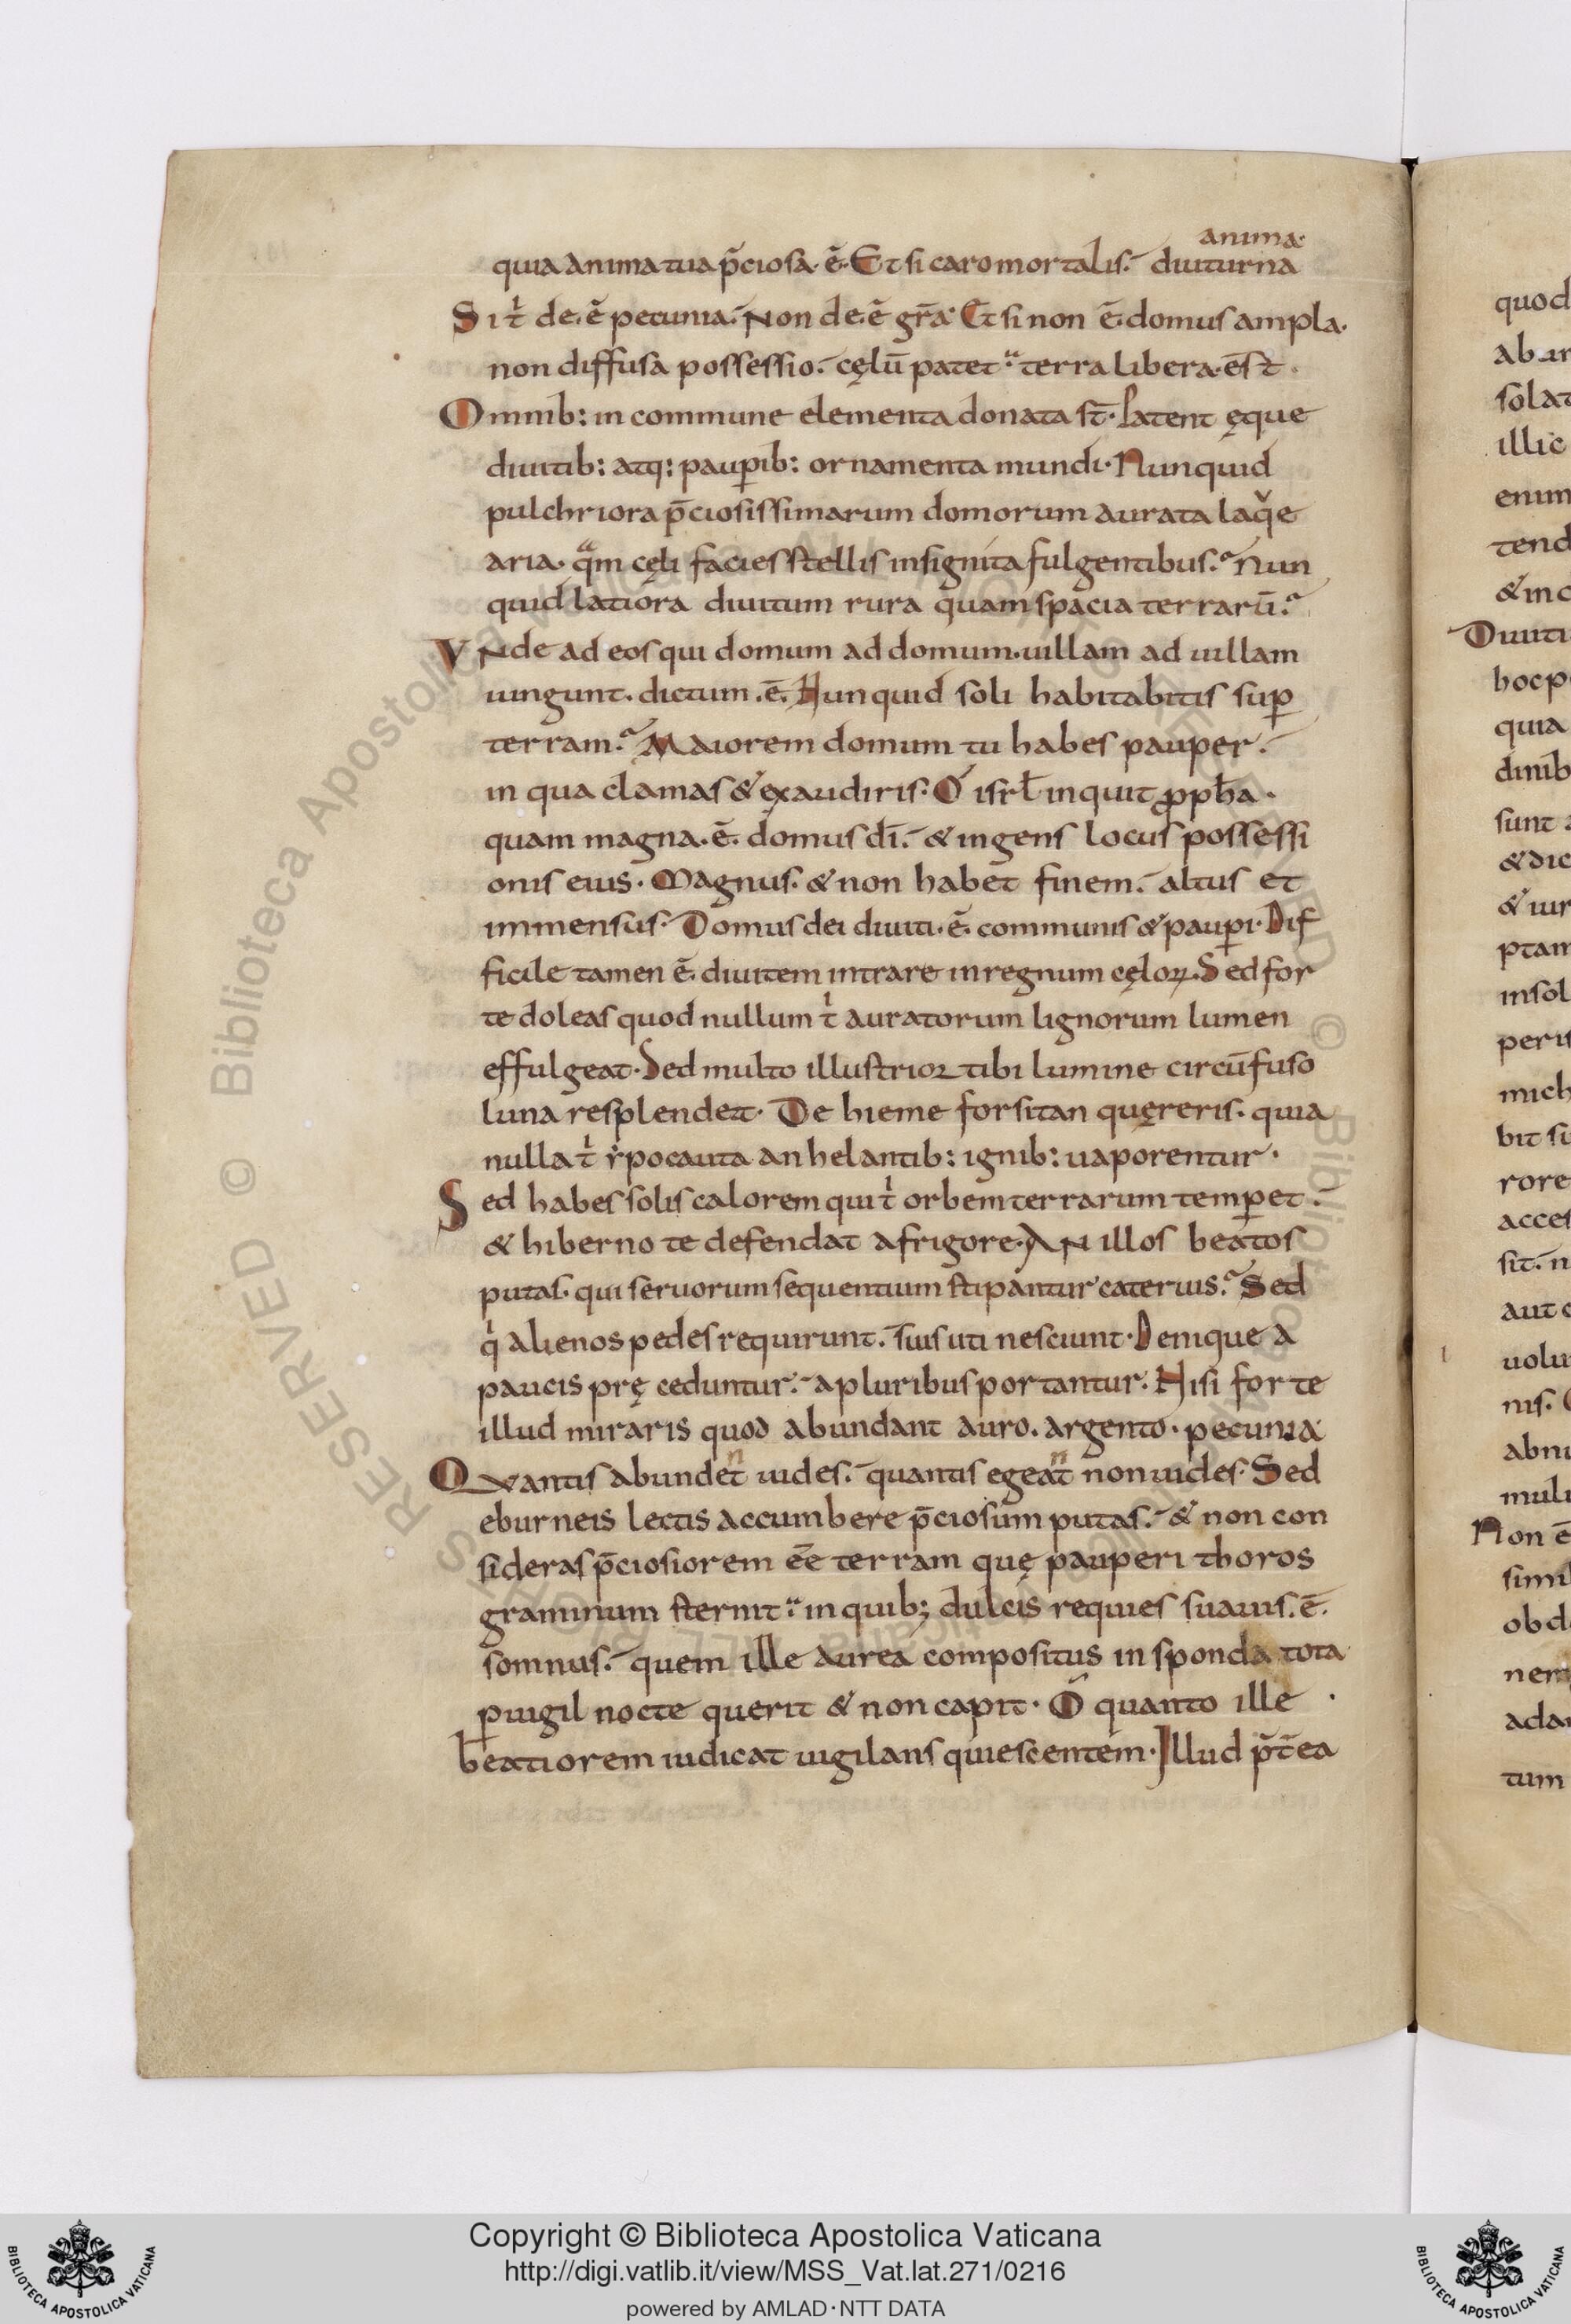 anima·
quia anima tua p̄ciosa· ē· Et si caro mortalis· diuturna
Si t̍ de·ē pecunia· Non de·ē gr̄a· Et si non ē· domus ampla·
non diffusa possessio· cęlū patet· terra libera· ēst·
Omnib: in commune elementa donata st̄· Patent ęque
diuitib: atq: paup̲ib: ornamenta mundi· Nunquid
pulchriora p̄ciosissimarum domorum aurata laq̆e
aria· qᷓm cęli facies stellis insignita fulgentibus? Nun
quid latiora diuitum rura quam spacia terrarū?
VNde ad eos qui domum ad domum· uillam ad uillam
uingunt· dictum ·ē· Nunquid soli habitabitis sup̲
terram? Maiorem domum tu habes pauper·
in qua clamas & exaudiris· O isrl̄ inquit ꝓph̄a·
quam magna· ē· domus dī· & ingens locus possessi
onis eius· Magnus· & non habet finem· altus et
immensus· Domus dei diuiti· ē· communis & paup̲i· Dif
ficile tamen ē· diuitem intrare in regnum cęloꝝ· Sed for
te doleas quod nullum t̍ auratorum lignorum lumen
effulgeat· Sed multo illustrior tibi lumine circūfuso
luna resplendet· De hieme forsitan quęreris· quia
nulla t̍ ypocauta anhelantib: ignib: uaporentur·
Sed habes solis calorem qui t̍ orbem terrarum temp̲et·
& hiberno te defendat a frigore· AN illos beatos
putas· qui seruorum sequentium stipantur cateruis? Sed
q̍ alienos pedes requirunt· suis uti nesciunt· Denique a
paucis prę ceduntur· a pluribus portantur· Nisi forte
illud miraris quod abundant auro· argento· pecunia·
n n
Quantis abundet uides· quantis egeat non uides· Sed
eburneis lectis accumbere p̄ciosum putas· & non con
sideras p̄ciosiorem ēē terram quę pauperi thoros
graminum sternit· in quib; dulcis requies suauis· ē·
somnus· quem ille aurea compositus in sponda tota
p̲uigil nocte querit & non capit· O quanto ille ·
beatiorem iudicat uigilans quiescentem· Illud p̄t̄ea
quod
abun
solat
illic
enim
tend
& in c
Diuiti
hoc p
quia
dinib
sunt
& dic
& iur
ptam
insol
peris
mich
bit su
rore
acces
sit· n
aut c
uolu
nis·
abnu
mult
Non ē
simil
ob d
nem
ada
tum
© Biblioteca Apostolica Vaticana ALL RIGHTS RESERVED © Biblioteca Apostolica Vaticana ALL RIGHTS RESERVED
Copyright © Biblioteca Apostolica Vaticana
http://digi.vatlib.it/view/MSS_Vat.lat.271/0216
powered by AMLAD·NTT DATA
BIBLIOTECA APOSTOLICA VATICANA
BIBLIOTECA APOSTOLICA VATICANA